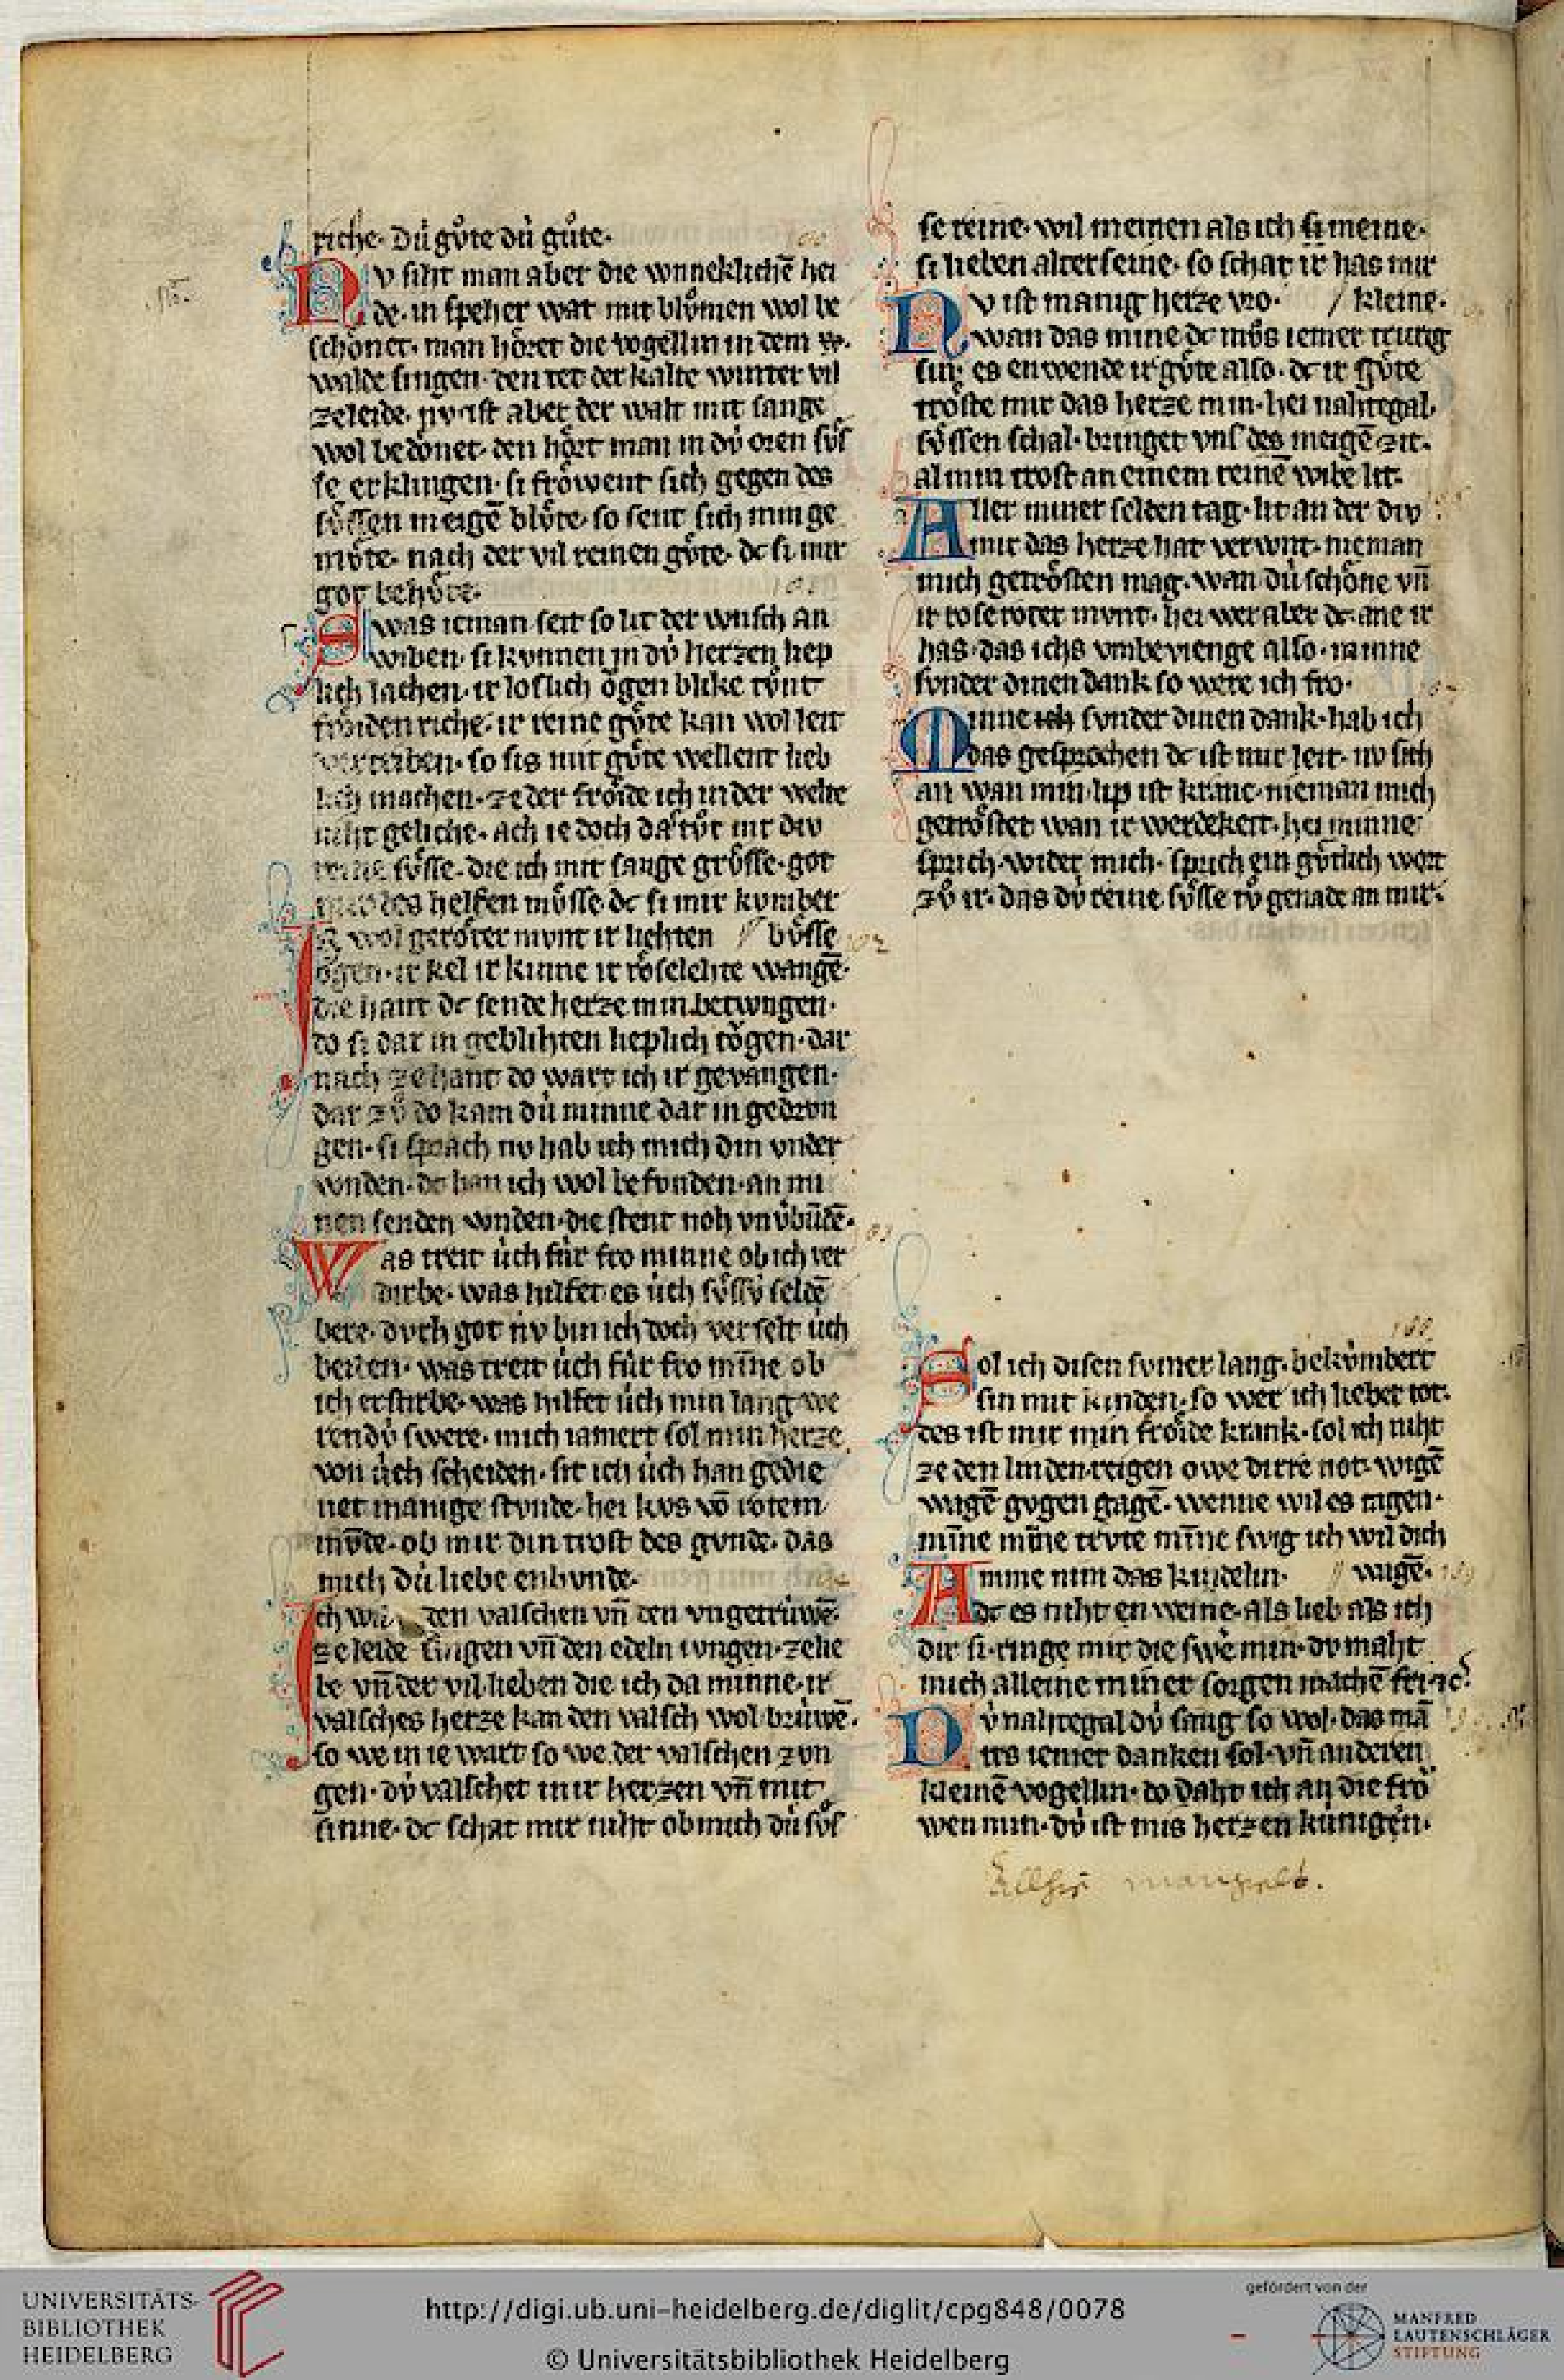 riche· dú gv̊te dú gůte·
Nv siht man aber die wnneklichē hei
de· in speher wat mit blv̊men wol be
schönet· man höret die vogellin in dem
walde singen· den tet der kalte winter vil
zeleide· nv ist aber der walt mit sange
wol bedönet· den hört man in dv́ oren sv̊s
se erklingen· si fröwent sich gegen des
sv̊ssen meigē blv̊te· so sent sich min ge
mv̊te· nach der vil reinen gv̊te· dc si mir
got behv̊te·
Swas ieman seit so lit der wnsch an
wiben· si kvnnen in dv́ herzen liep
lich lachen· ir loslich ögen blike tv̊nt
fröiden riche· ir reine gv̊te kan wol leit
vertriben· so sis mit gv̊te wellent lieb
lich machen· zeder fröide ich in der welte
niht geliche· ach ie doch da tv̊t mir div
reine sv̊sse· die ich mit sange grv̊sse· got
mir des helfen mv̊sse dc si mir kvmber
Ir wol geröter mvnt ir liehten // bv̊sse
ögen· ir kel ir kinne ir röselehte wangē·
die hant dc sende herze min betwngen·
do si dar in geblihten lieplich tögen· dar
nach ze hant do wart ich ir gevangen·
dar zv̊ do kam dú minne dar in gedrvn
gen· si sprach nv hab ich mich din vnder
wnden· dc han ich wol befvnden· an mi
nen senden wnden· die stent noh vnv́būdē·
Was treit úch für fro minne ob ich ver
dirbe· was hilfet es úch sv̊ssv́ selde
bere· dvrh got nv bin ich doch ver selt úch
beiden· was treit úch für fro mīne ob
ich erstirbe· was hilfet úch min lang we
rendv́ swere· mich iamert sol min herze
von úch scheiden· sit ich úch han gedie
net manige stvnde· hei kvs vō rotem
mvn̄de· ob mir din trost des gvnde· das
mich dú liebe enbvnde·
Ich wil den valschen vn̄ den vngetrúwē·
ze leide singen vn̄ den edeln ivngen· zelie
be vn̄ der vil lieben die ich da minne· ir
valsches herze kan den valsch wol brúwē·
so we in ie wart so we der valschen zvn
gen· dv́ valschet mit herzen vn̄ mit
sinne· dc schat mir niht ob mich dú sv̊s
se reine· wil meinen als ich si meine·
si lieben alters eine· so schat ir has mir
Nv ist manig herze vro· / kleine·
wan das mine dc mv̊s iemer trurig
sin· es enwende ir gv̊te also· dc ir gv̊te
tröste mir das herze min· hei nahtegal·
sv̊ssen schal· bringet vns des meigē zit·
al min trost an einem reinē wibe lit·
Aller miner selden tag· lit an der div
mir das herze hat verwnt· nieman
mich getrösten mag· wan dú schöne vn̄
ir rose roter mvnt· hei wer aber dc ane ir
has· das ichs vmbevienge also· minne
svnder dinen dank so were ich fro·
Minne ich svnder dinen dank· hab ich
das gesprochen dc ist mir leit· nv sich
an wan min lip ist kranc· nieman mich
getröstet wan ir werdekeit· hei minne
sprich· wider mich· sprich ein gv̊tlich wort
zv̊ ir· das dv́ reine sv̊sse tv̊ genade an mir·
Sol ich disen svmer lang· bekv́mbert
sin mit kinden· so wer ich lieber tot·
des ist mir min fröide krank· sol ich niht
ze den linden reigen owe dirre not· wigē
wagē gvgen gagē· wenne wil es tagen·
mīne mīne trvte mīne swig ich wil dich
Amme nim das kindelin· // wagē·
dc es niht en weine· als lieb als ich
dir si· ringe mir die swe min· dv maht
mich alleine miner sorgen machē fri·
Dv́ nahtegal dv́ sang so wol· das mā
irs iemer danken sol· vn̄ anderen
kleinē vogellin· do daht ich an die frö
wen min· dv́ ist mis herzen kúnigin·
UNIVERSITÄTS-
BIBLIOTHEK
HEIDELBERG
http://digi.ub.uni-heidelberg.de/diglit/cpg848/0078
© Universitätsbibliothek Heidelberg
gefördert von der
MANFRED
LAUTENSCHLÄGER
STIFTUNG